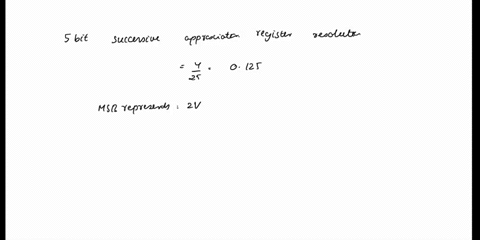 5 bit successive approxiation register resolution
= 4/25 = 0.125
MSB represents : 2V